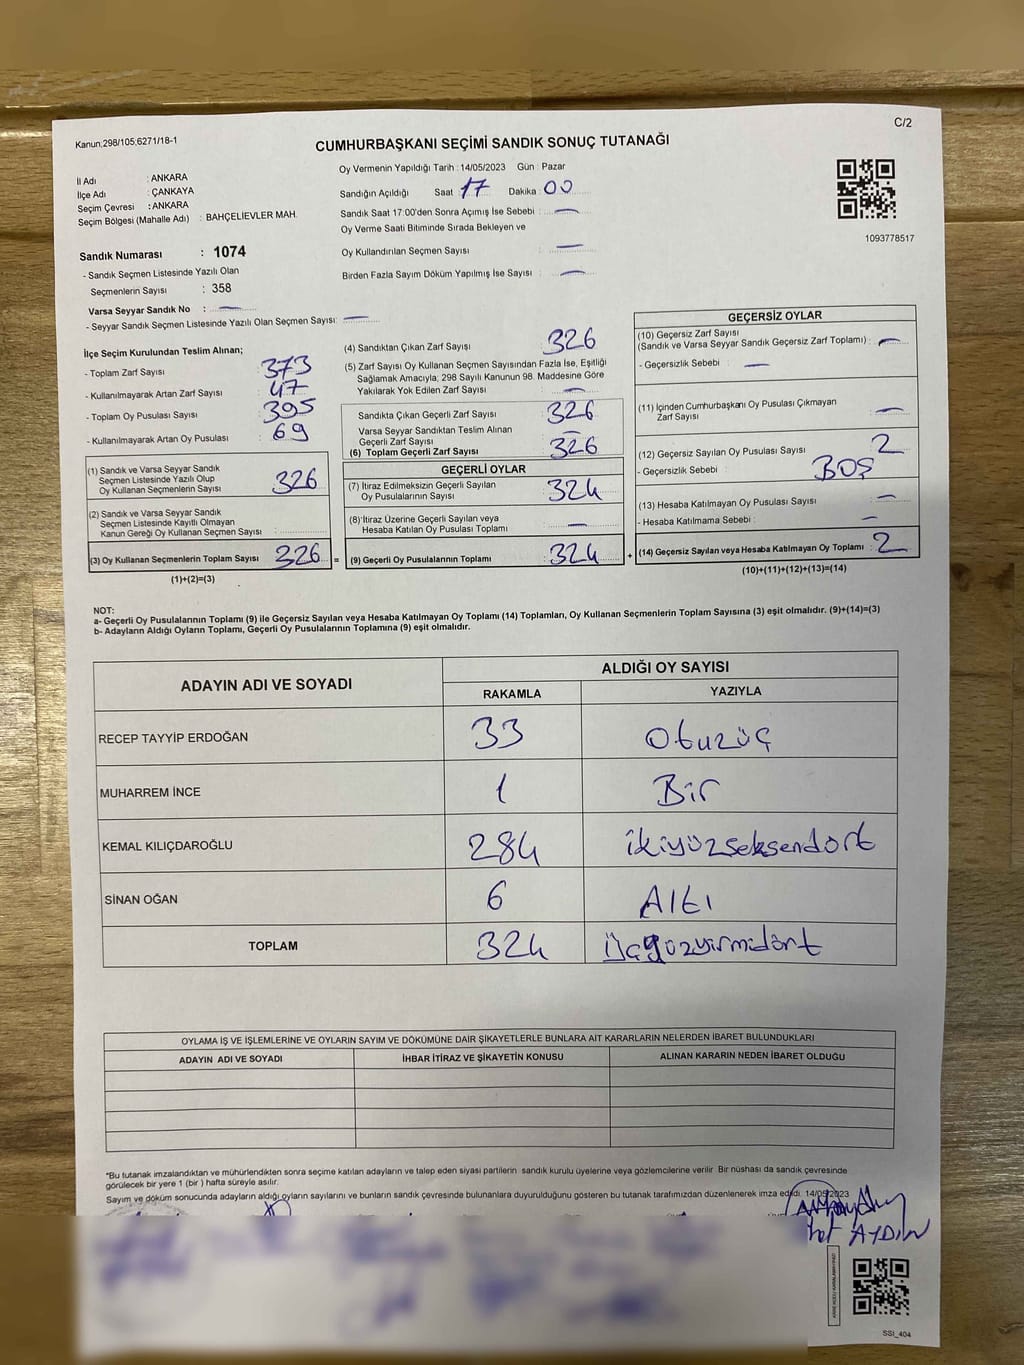 C/2
Kanun;298/105;6271/18-1
CUMHURBAŞKANI SEÇİMİ SANDIK SONUÇ TUTANAĞI
İl Adı : ANKARA
İlçe Adı : ÇANKAYA
Seçim Çevresi : ANKARA
Seçim Bölgesi (Mahalle Adı) : BAHÇELİEVLER MAH.
Oy Vermenin Yapıldığı Tarih : 14/05/2023 Gün : Pazar
Sandığın Açıldığı Saat : 17 Dakika : 00
Sandık Saat 17:00'den Sonra Açımış İse Sebebi : —
Oy Verme Saati Bitiminde Sırada Bekleyen ve
Oy Kullandırılan Seçmen Sayısı : —
Birden Fazla Sayım Döküm Yapılmış İse Sayısı : —
1093778517
Sandık Numarası : 1074
- Sandık Seçmen Listesinde Yazılı Olan
Seçmenlerin Sayısı : 358
Varsa Seyyar Sandık No : —
- Seyyar Sandık Seçmen Listesinde Yazılı Olan Seçmen Sayısı: —
İlçe Seçim Kurulundan Teslim Alınan;
- Toplam Zarf Sayısı : 373
- Kullanılmayarak Artan Zarf Sayısı : 47
- Toplam Oy Pusulası Sayısı : 395
- Kullanılmayarak Artan Oy Pusulası : 69
(1) Sandık ve Varsa Seyyar Sandık
Seçmen Listesinde Yazılı Olup
Oy Kullanan Seçmenlerin Sayısı : 326
(2) Sandık ve Varsa Seyyar Sandık
Seçmen Listesinde Kayıtlı Olmayan
Kanun Gereği Oy Kullanan Seçmen Sayısı :
(3) Oy Kullanan Seçmenlerin Toplam Sayısı : 326 =
(1)+(2)=(3)
(4) Sandıktan Çıkan Zarf Sayısı : 326
(5) Zarf Sayısı Oy Kullanan Seçmen Sayısından Fazla İse, Eşitliği
Sağlamak Amacıyla; 298 Sayılı Kanunun 98. Maddesine Göre
Yakılarak Yok Edilen Zarf Sayısı : —
Sandıkta Çıkan Geçerli Zarf Sayısı : 326
Varsa Seyyar Sandıktan Teslim Alınan
Geçerli Zarf Sayısı : —
(6) Toplam Geçerli Zarf Sayısı : 326
GEÇERLİ OYLAR
(7) İtiraz Edilmeksizin Geçerli Sayılan
Oy Pusulalarının Sayısı : 324
(8) İtiraz Üzerine Geçerli Sayılan veya
Hesaba Katılan Oy Pusulası Toplamı : —
(9) Geçerli Oy Pusulalarının Toplamı : 324 +
GEÇERSİZ OYLAR
(10) Geçersiz Zarf Sayısı
(Sandık ve Varsa Seyyar Sandık Geçersiz Zarf Toplamı) : —
- Geçersizlik Sebebi : —
(11) İçinden Cumhurbaşkanı Oy Pusulası Çıkmayan
Zarf Sayısı : —
(12) Geçersiz Sayılan Oy Pusulası Sayısı : 2
- Geçersizlik Sebebi : BOŞ
(13) Hesaba Katılmayan Oy Pusulası Sayısı : —
- Hesaba Katılmama Sebebi : —
(14) Geçersiz Sayılan veya Hesaba Katılmayan Oy Toplamı : 2
(10)+(11)+(12)+(13)=(14)
NOT:
a- Geçerli Oy Pusulalarının Toplamı (9) ile Geçersiz Sayılan veya Hesaba Katılmayan Oy Toplamı (14) Toplamları, Oy Kullanan Seçmenlerin Toplam Sayısına (3) eşit olmalıdır. (9)+(14)=(3)
b- Adayların Aldığı Oyların Toplamı, Geçerli Oy Pusulalarının Toplamına (9) eşit olmalıdır.
ADAYIN ADI VE SOYADI ALDIĞI OY SAYISI
RAKAMLA YAZIYLA
RECEP TAYYİP ERDOĞAN 33 Otuzüç
MUHARREM İNCE 1 Bir
KEMAL KILIÇDAROĞLU 284 ikiyüzseksendört
SİNAN OĞAN 6 Altı
TOPLAM 324 Üçyüzyirmidört
OYLAMA İŞ VE İŞLEMLERİNE VE OYLARIN SAYIM VE DÖKÜMÜNE DAİR ŞİKAYETLERLE BUNLARA AİT KARARLARIN NELERDEN İBARET BULUNDUKLARI
ADAYIN ADI VE SOYADI İHBAR İTİRAZ VE ŞİKAYETİN KONUSU ALINAN KARARIN NEDEN İBARET OLDUĞU
*Bu tutanak imzalandıktan ve mühürlendikten sonra seçime katılan adayların ve talep eden siyasi partilerin sandık kurulu üyelerine veya gözlemcilerine verilir Bir nüshası da sandık çevresinde
görülecek bir yere 1 (bir ) hafta süreyle asılır.
Sayım ve döküm sonucunda adayların aldığı oyların sayılarını ve bunların sandık çevresinde bulunanlara duyurulduğunu gösteren bu tutanak tarafımızdan düzenlenerek imza edildi. 14/05/2023
AYDIN
SSI_404